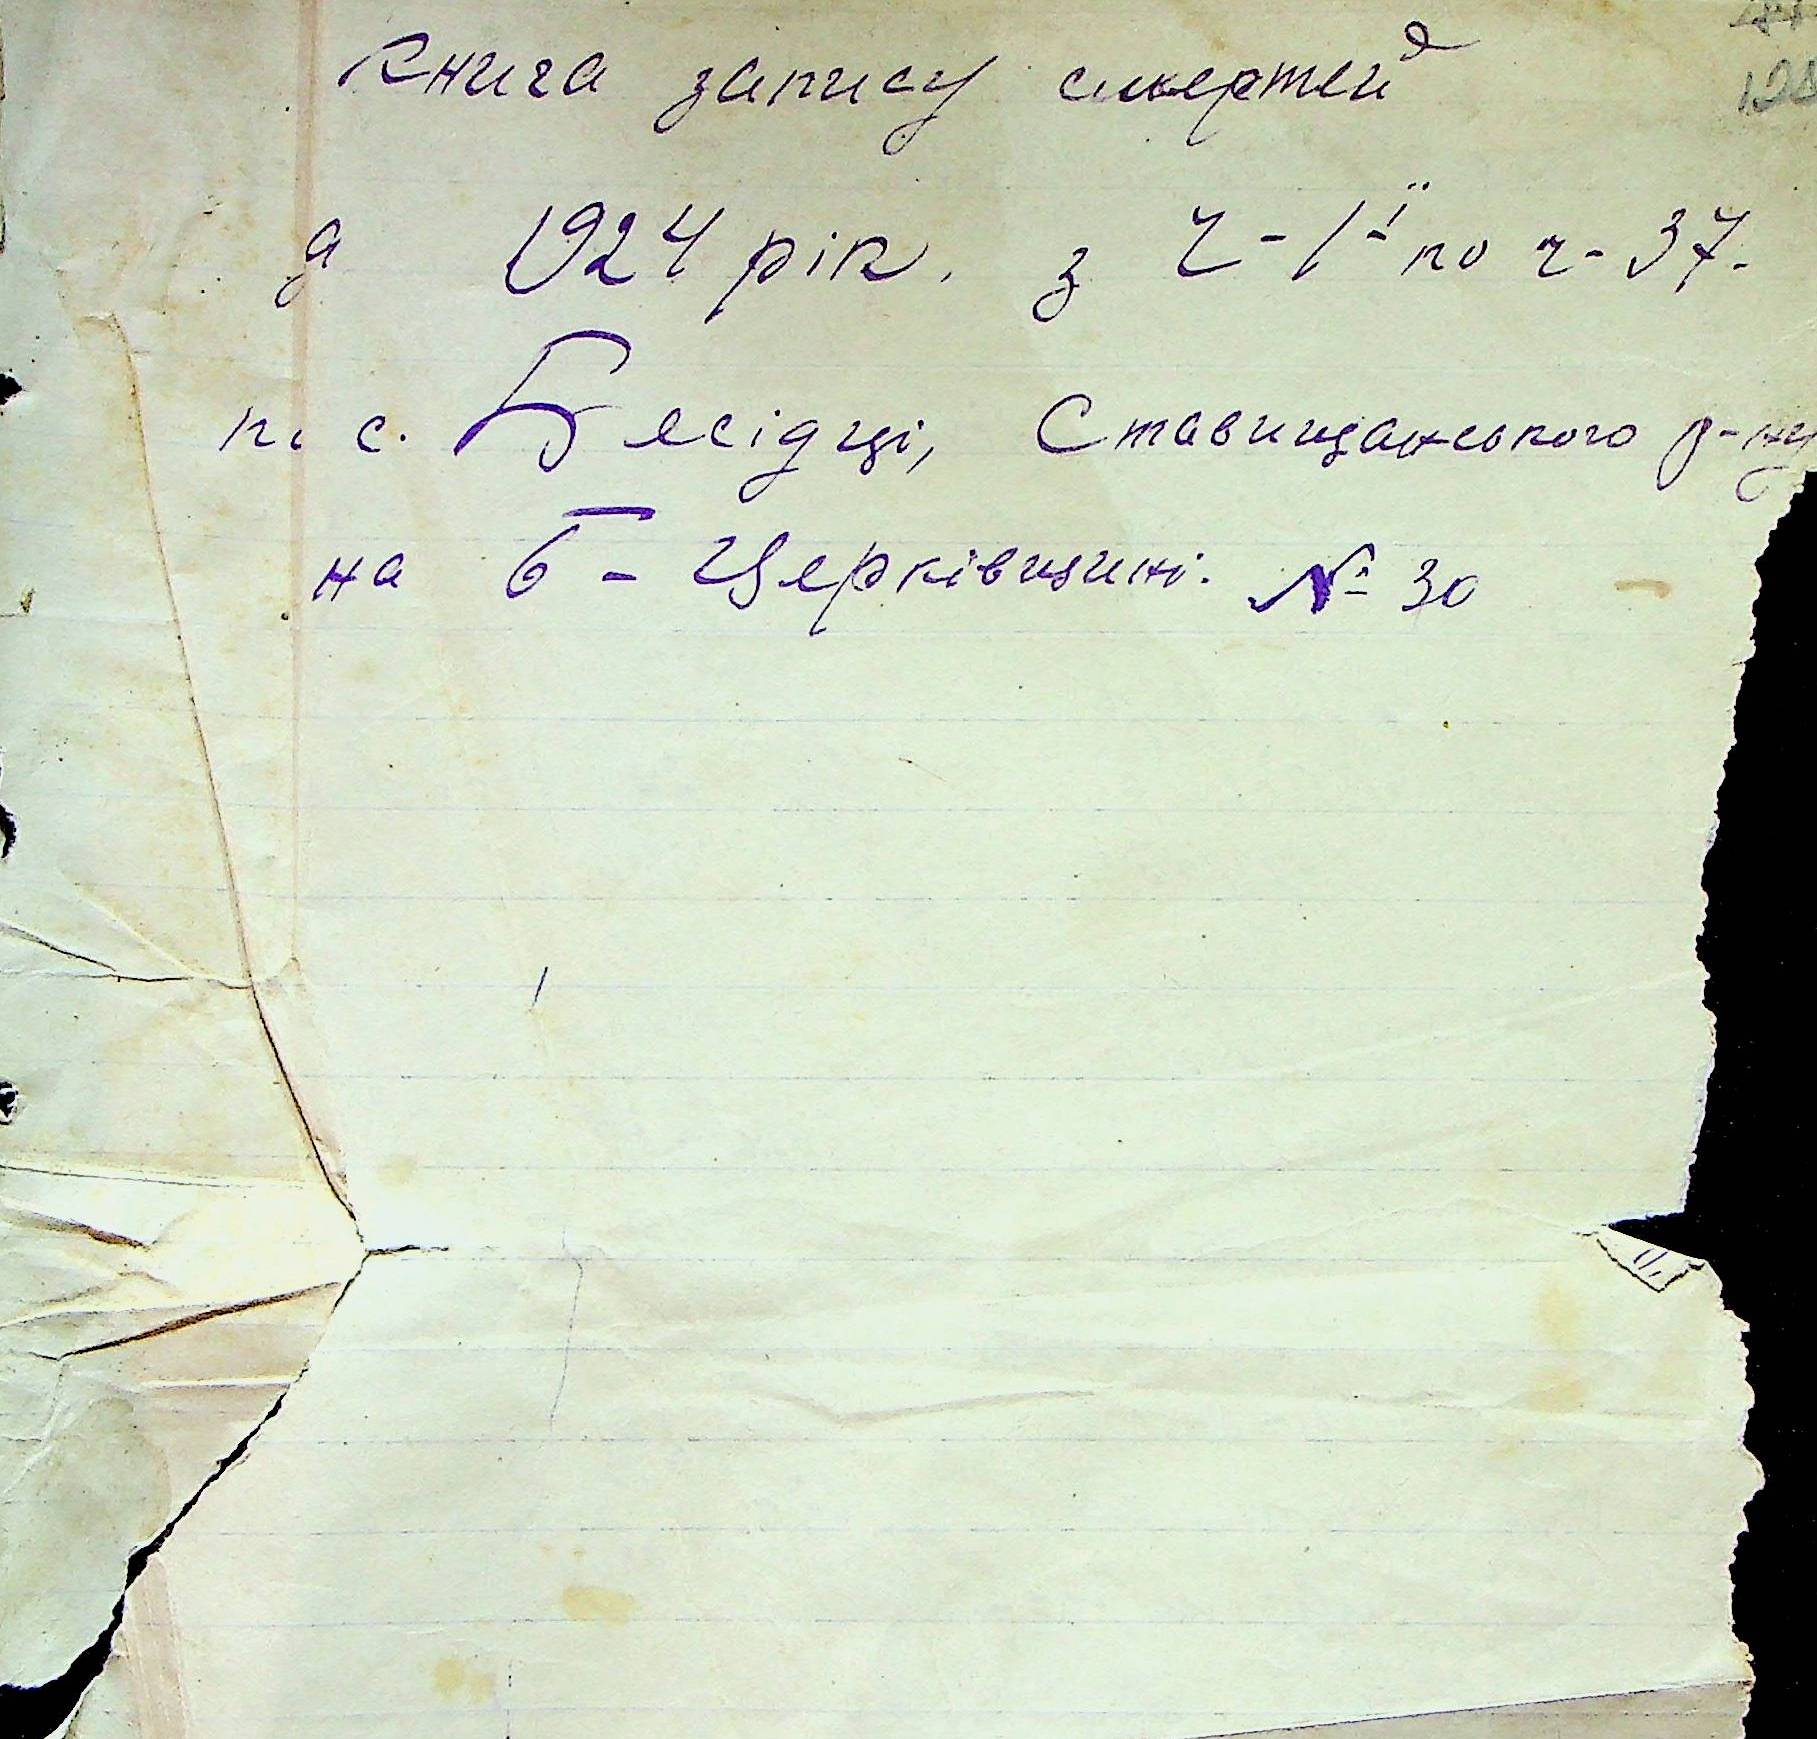 Книга запису смертей
за 1924 рік. з Ч-1-ї по ч-37.
по с. Бесідці, Ставищанського р-ну
на Б-Церківщині. № 30